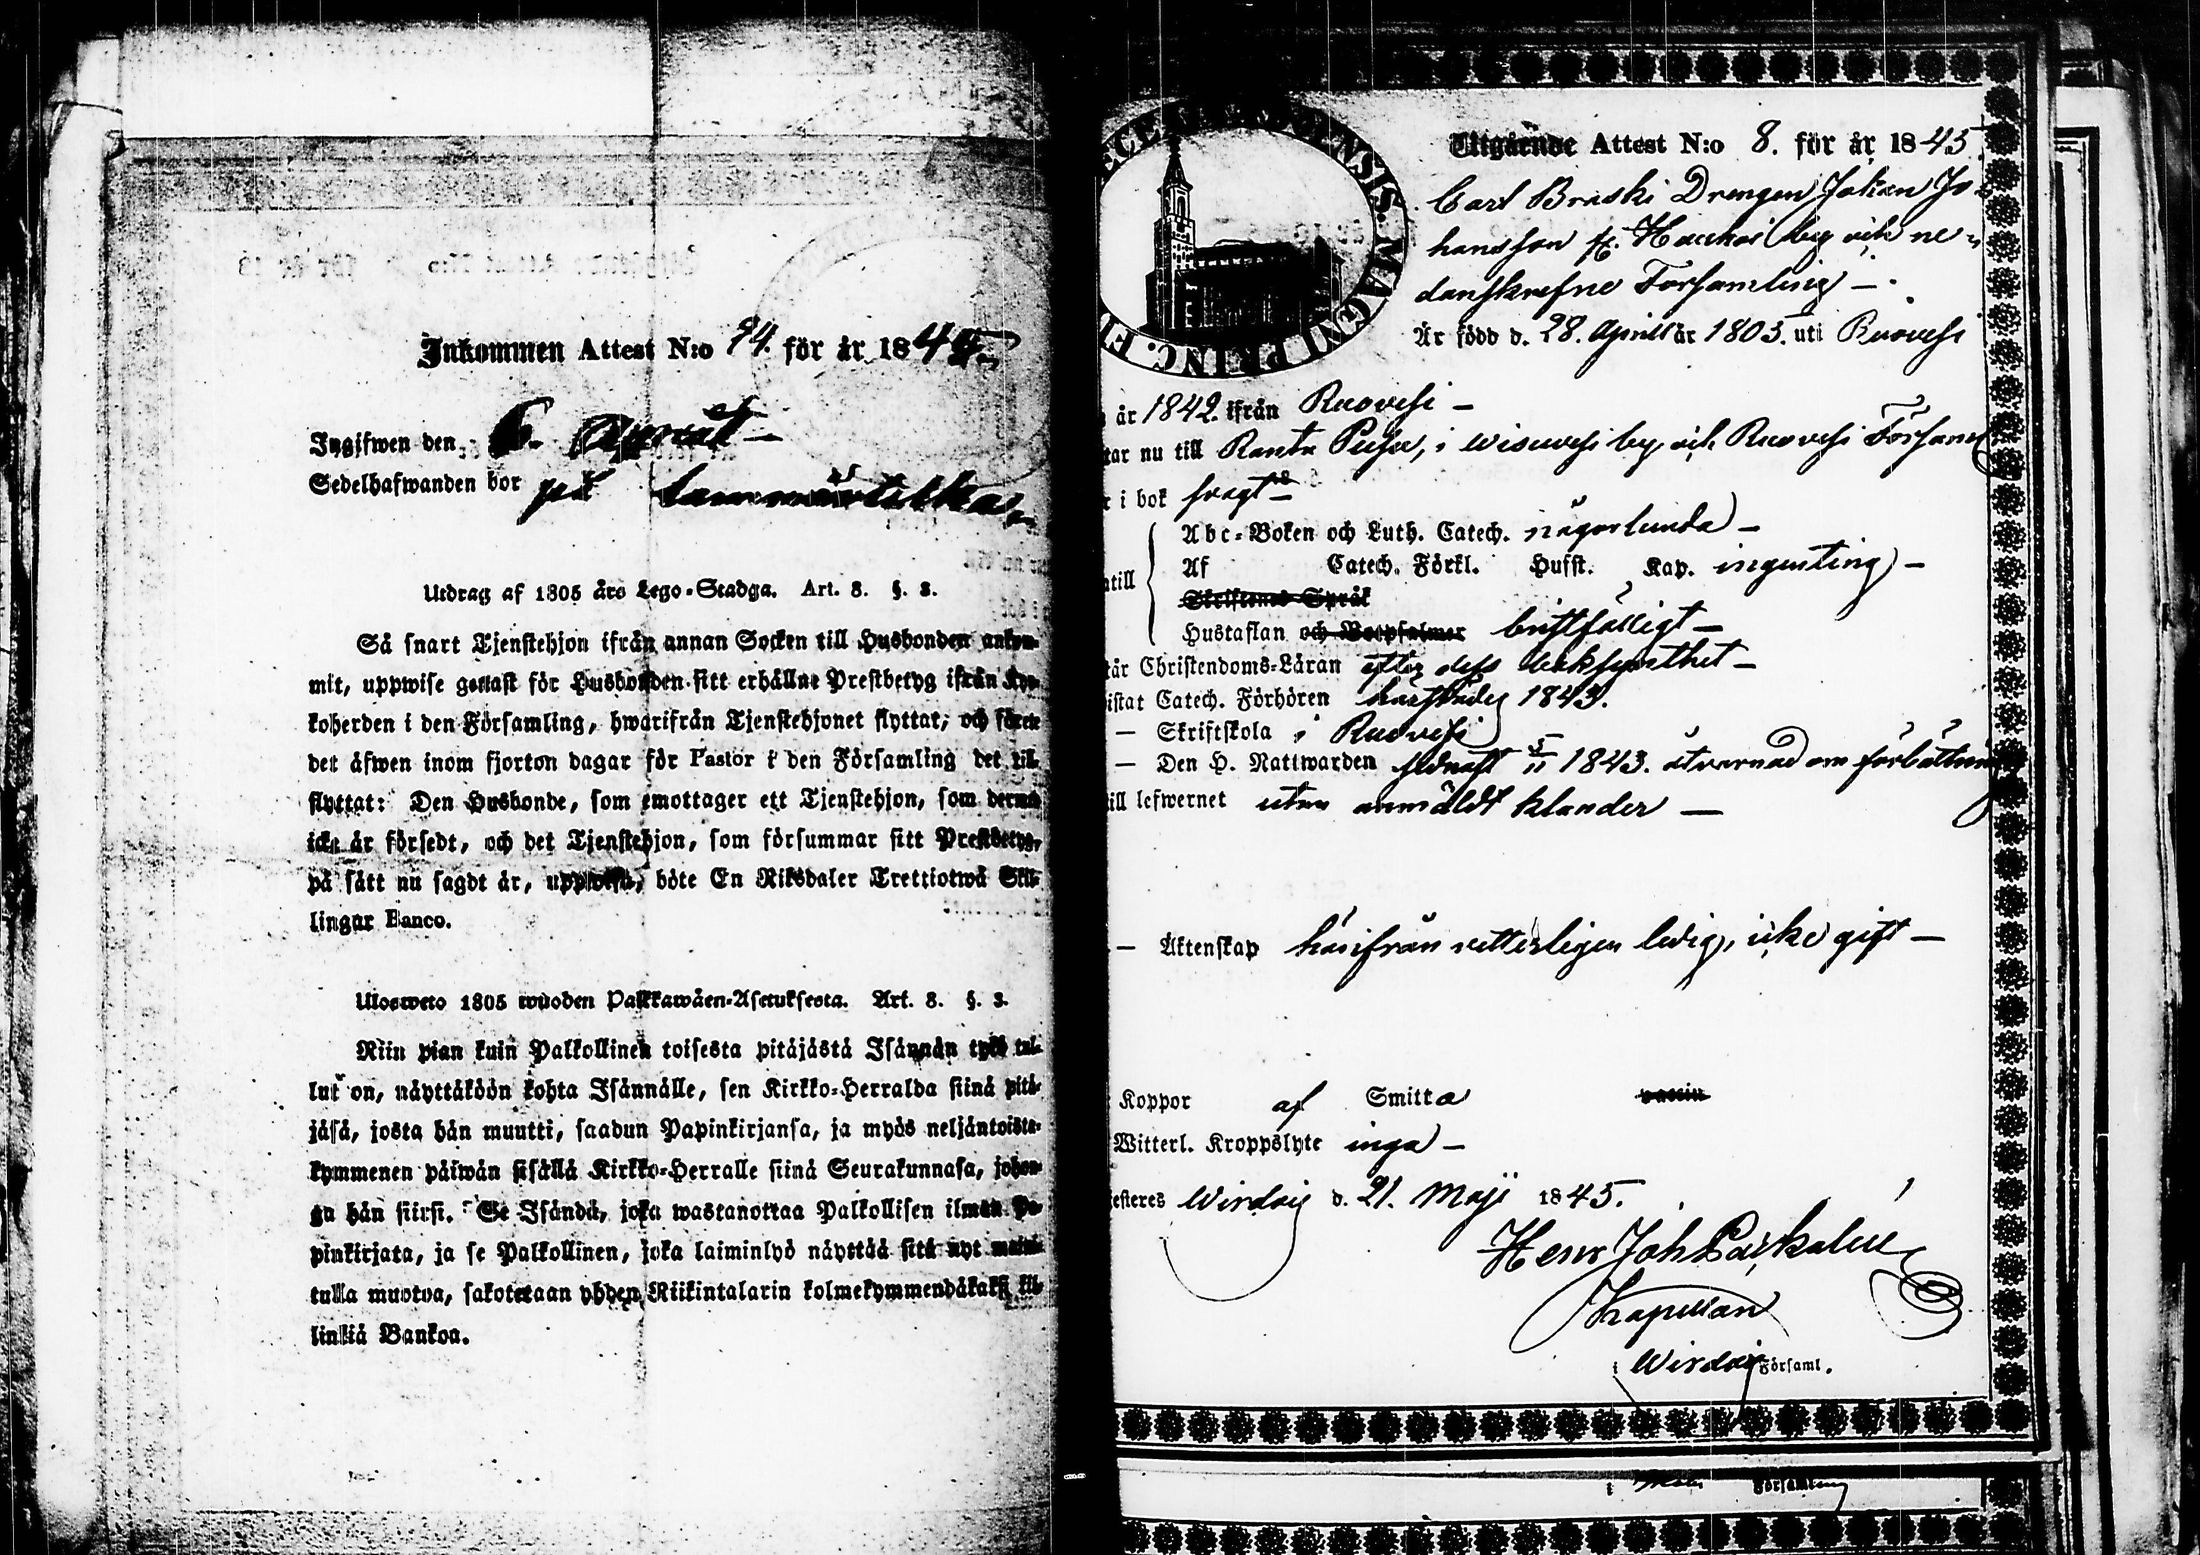 Inkommen Attest N:o 94. för år 1845
Ingifwen den 6.
Sedelhafwanden bor på
Utdrag af 1805 års Lego-Stadga. Art. 8. §. 3.
Så snart Tjenstehjon ifrån annan Socken till Husbonden ankom-
mit, uppwise genast för Husbonden sitt erhållne Prestbetyg ifrån Kyr-
koherden i den Församling, hwarifrån Tjenstehjonet flyttat, och förete
det äfwen inom fjorton dagar för Pastor i den Församling det till-
flyttat: Den Husbonde, som emottager ett Tjenstehjon, som dermed
icke är försedt, och det Tjenstehjon, som försummar sitt Prestbetyg,
på sätt nu sagdt är, uppwisa, böte En Riksdaler Trettiotwå Skil-
lingar Banco.
Ulosweto 1805 wuoden Palkkawäen-Asetuksesta. Art. 8. §. 3.
Niin pian kuin Palkollinen toisesta pitäjästä Isännän työö tul-
lut on, näyttäköön kohta Isännälle, sen Kirkko-Herralda siinä pitä-
jäsä, josta hän muutti, saadun Papinkirjansa, ja myös neljäntoista-
kymmenen päiwän sisällä Kirkko-Herralle siinä Seurakunnasa, johon-
ga hän siirsi. Se Isändä, joka wastanottaa Palkollisen ilman Pa-
pinkirjata, ja se Palkollinen, joka laiminlyö näyttää sitä nyt maini-
tulla muotoa, sakotetaan yhden Riikintalarin kolmekymmendäkaksi kil-
linkiä Bankoa.
Utgående Attest N:o 8. för år 1845
Drengen Johan Jo-
hansson fr. by och ne-
danskrefne Församling —
Är född d. 28. April år 1803. uti Ruovesi
år 1842. ifrån Ruovesi —
tar nu till by och Ruovesi Församl
r i bok svagt —
Abc-Boken och Luth. Catech. någorlunda —
atill Af Catech. Förkl. Hufst. Kap. ingenting —
Skriftenes Språk
Hustaflan och Botpsalmer bristfälligt —
tår Christendoms-Läran efter dess
istat Catech. Förhören härstädes 1843.
— Skriftskola i Ruovesi
— Den H. Nattwarden sednast 5/11 1843.
ill lefwernet utan anmäldt klander —
— Äktenskap härifrån vetterligen ledig, icke gift —
Koppor af Smitta vaccin
Witterl. Kroppslyte inga —
esteres Wirdois d. 21. Maji 1845.
Henr Joh
Kapellan
i Wirdois Församl.
i Församling